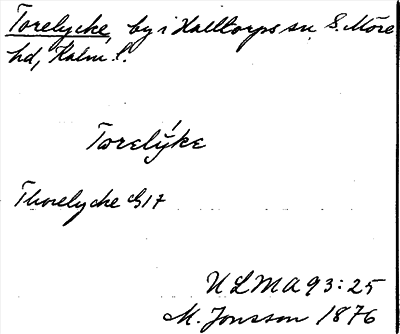 Torelycke, by i Halltorps sn, S. Möre
hd, Kalm l.
Torelýke
Thorelycke 17
ULMA 93:25
M. Jonsson 1876